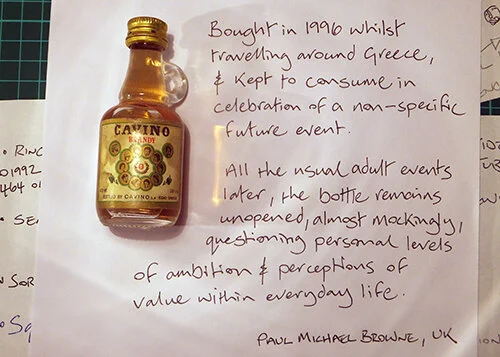 Bought in 1996 whilst
travelling around Greece,
& Kept to consume in
celebration of a non-specific
future event.
All the usual adult events
later, the bottle remains
unopened, almost mockingly,
questioning personal levels
of ambition & perceptions of
value within everyday life.
PAUL MICHAEL BROWNE, UK
CAVINO
BRANDY
BOTTLED BY CAVINO
• RING
01992
464 01
• SE
SOR
• Sq